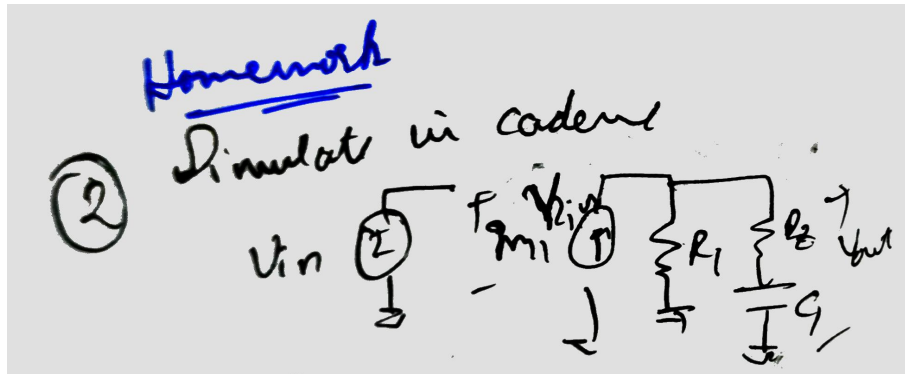 Homework
② Simulate in cadence
Vin gm1 Vin R1 Rz Vout
C1